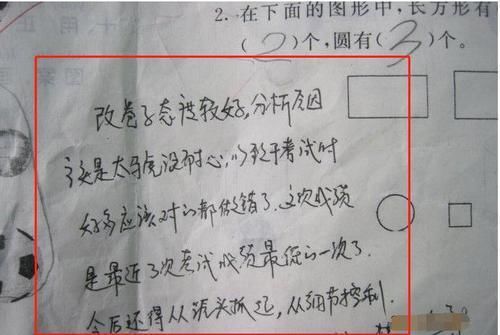 2. 在下面的图形中,长方形有
(2)个,圆有(3)个。
改卷子态度较好,分析原因
主要是太马虎没耐心,以致于考试时
好多应该对的都做错了.这次成绩
是最近几次考试成绩最低的一次了.
今后还得从源头抓起,从细节控制.